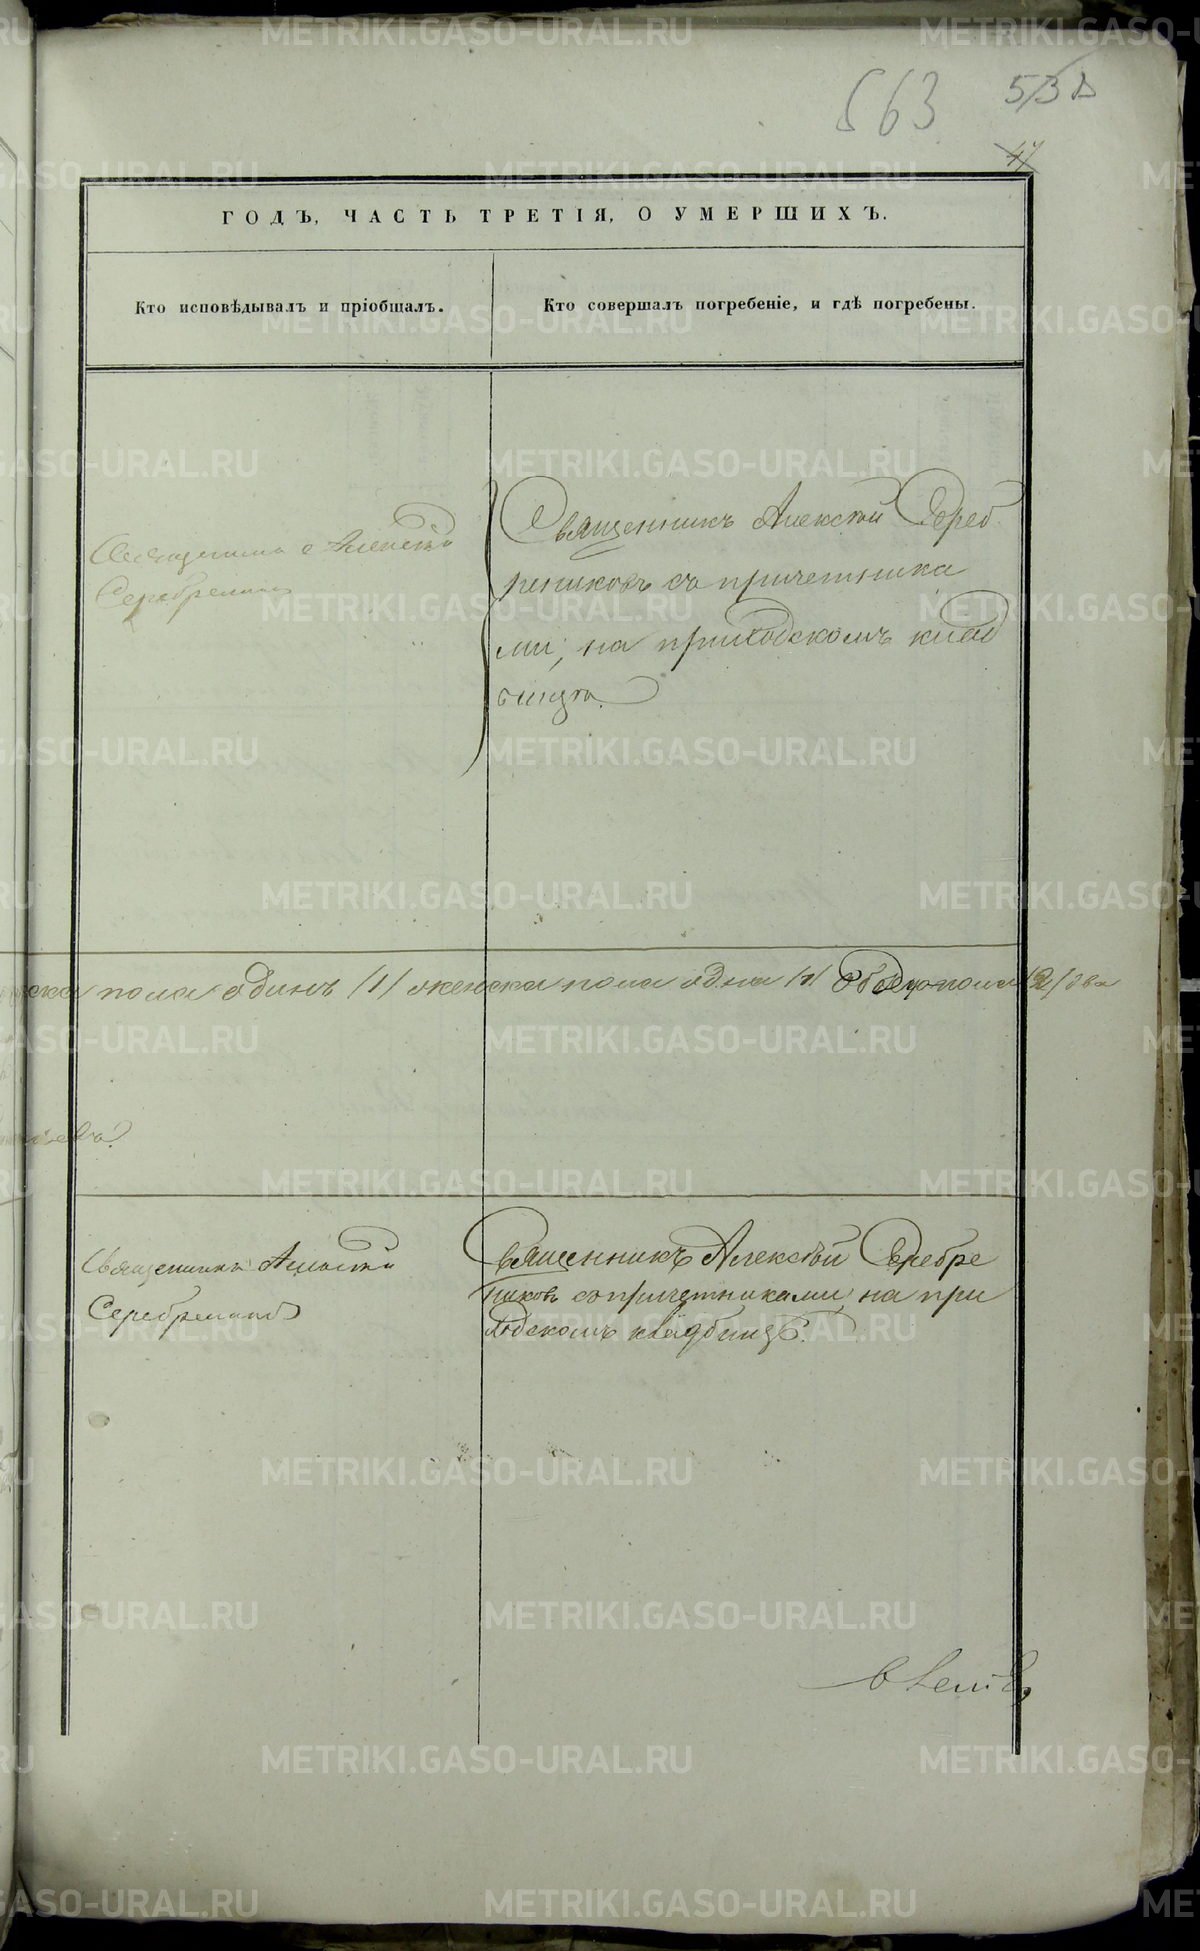 563 53
47
ГОДЪ, ЧАСТЬ ТРЕТІЯ, О УМЕРШИХЪ.
Кто исповѣдывалъ и пріобщалъ.
Кто совершалъ погребеніе, и гдѣ погребены.
Священникъ Алексѣй
Серебрениковъ
Священникъ Алексѣй Сереб
рениковъ съ причетника
ми, на приходскомъ клад
бищѣ.
пола одинъ /1/ женска пола одна /1/ обоего пола /2/ два
Священникъ Алексѣй
Серебрениковъ
Священникъ Алексѣй Серебре
никовъ съ причетниками, на при
ходскомъ кладбищѣ.
METRIKI.GASO-URAL.RU